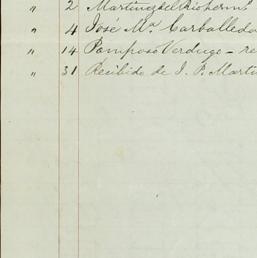 " 2 Martinez del Rio herms
" 4 José Ma. Carballeda
" 14 Pomposo Verdugo - re
" 31 Recibido de J. P. Marti